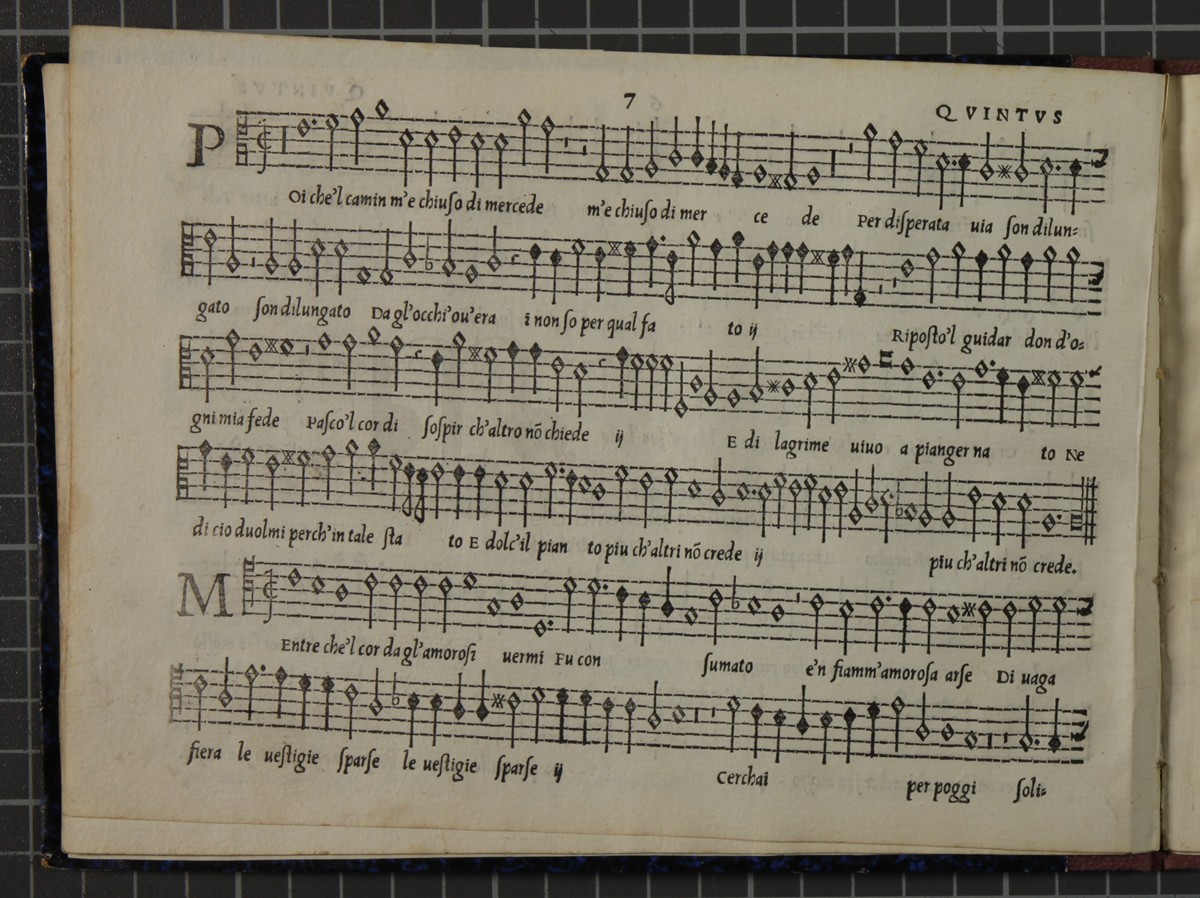 7
QVINTVS
POi che'l camin m'e chiuſo di mercede m'e chiuſo di mer ce de Per diſperata uia ſon dilun=
gato ſon dilungato Da gl'occhi'ou'era i non ſo per qual fa to ij Ripoſto'l guidar don d'o=
gni mia fede Paſco'l cor di ſoſpir ch'altro nõ chiede ij E di lagrime uiuo a pianger na to Ne
di cio duolmi perch'in tale ſta to E dolc'il pian to piu ch'altri nõ crede ij piu ch'altri nõ crede.
MEntre che'l cor da gl'amoroſi uermi Fu con ſumato e'n fiamm'amoroſa arſe Di uaga
fiera le ueſtigie ſparſe le ueſtigie ſparſe ij Cerchai per poggi ſoli=